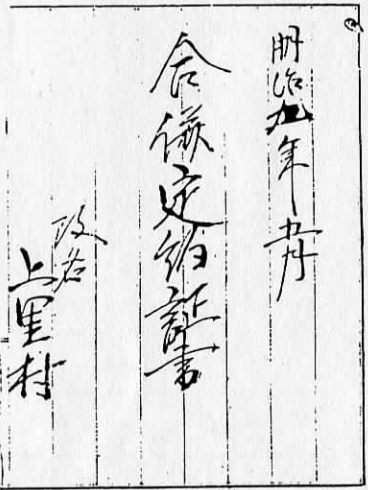 明治九年五月
合併定約証書
改名
上里村